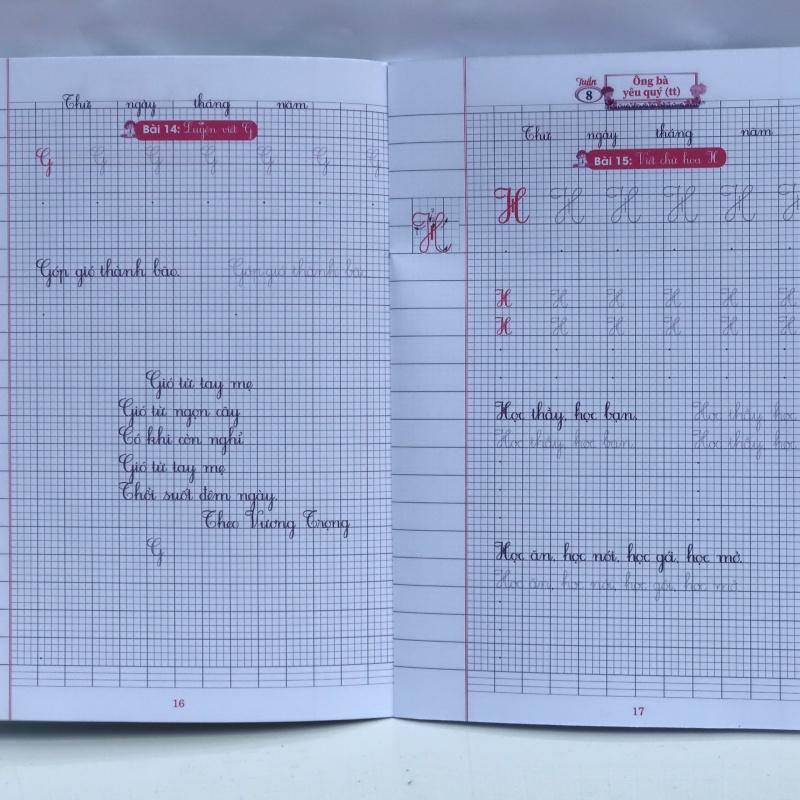 Thứ ngày tháng năm
Bài 14: Luyện viết G
G G G G G G G
Góp gió thành bão. Góp gió thành bão
Gió từ tay mẹ
Gió từ ngọn cây
Có khi còn nghỉ
Gió từ tay mẹ
Thổi suốt đêm ngày.
Theo Vương Trọng
G
16
Tuần 8
Ông bà
yêu quý (tt)
Thứ ngày tháng năm
Bài 15: Viết chữ hoa H
H
H H H H H H
H H H H H H
H H H H H H
Học thầy, học bạn. Học thầy, học
Học thầy, học bạn. Học thầy, học
Học ăn, học nói, học gói, học mở.
Học ăn, học nói, học gói, học mở.
17